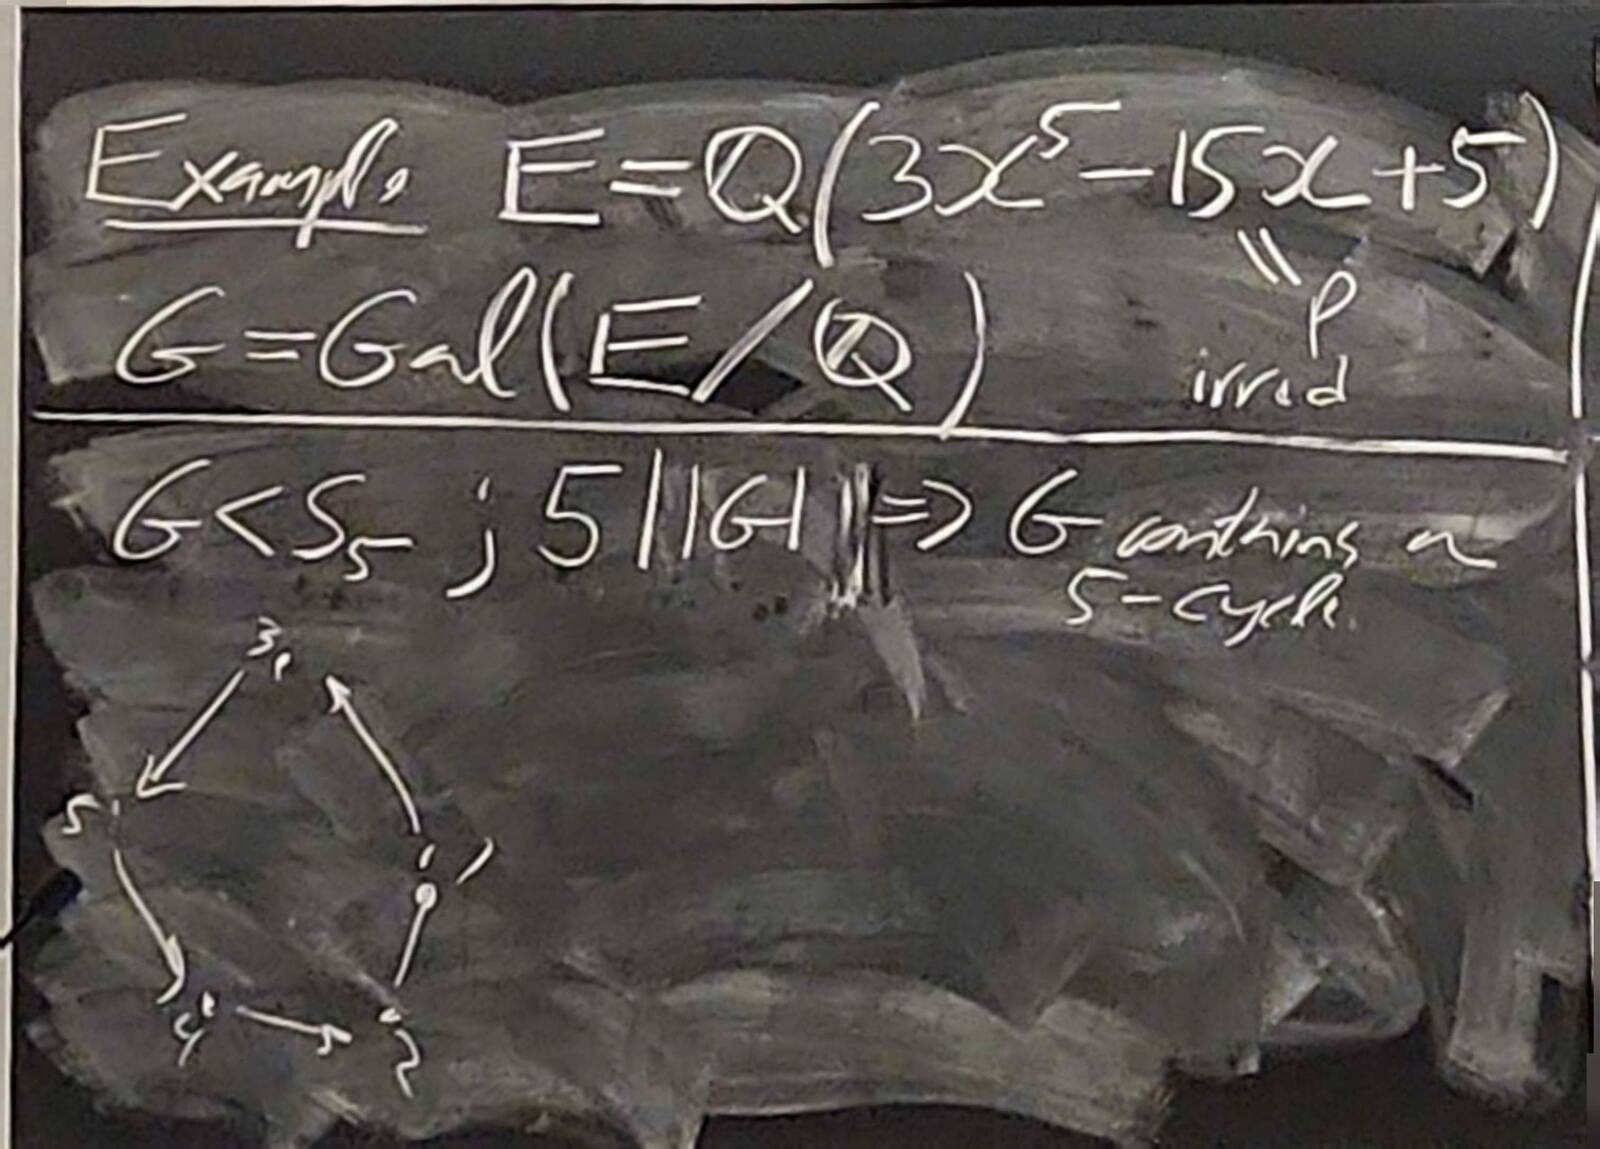 Example E=ℚ(3x⁵-15x+5)
G=Gal(E/ℚ)
" p
irred
G<S₅ ; 5||G| => G contains a
5-cycle.
3
5
1
4
2